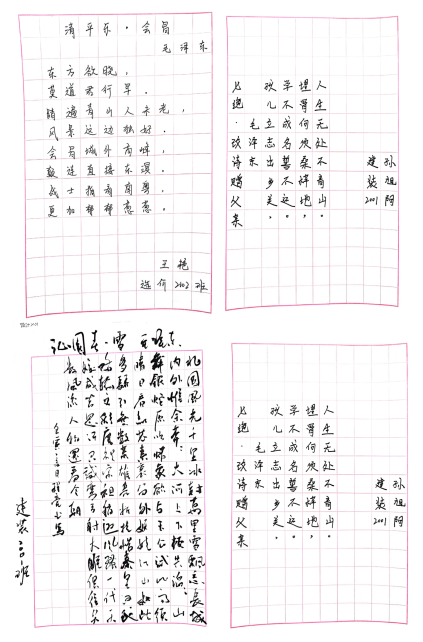 清平乐·会昌
毛泽东
东方欲晓，
莫道君行早。
踏遍青山人未老，
风景这边独好。
会昌城外高峰，
颠连直接东溟。
战士指看南粤，
更加郁郁葱葱。
王艳
造价2102班
七绝·改诗赠父亲
毛泽东
孩儿立志出乡关，
学不成名誓不还。
埋骨何须桑梓地，
人生无处不青山。
建装2001
孙祖阳
沁园春·雪 毛泽东
北国风光千里冰封万里雪飘望长城
内外惟余莽莽大河上下顿失滔滔山
舞银蛇原驰蜡象欲与天公试比高须
晴日看红装素裹分外妖娆江山如此
多娇引无数英雄竞折腰惜秦皇汉武
略输文采唐宗宋祖稍逊风骚一代天
骄成吉思汗只识弯弓射大雕俱往矣
数风流人物还看今朝
七绝·改诗赠父亲
毛泽东
孩儿立志出乡关，
学不成名誓不还。
埋骨何须桑梓地，
人生无处不青山。
建装2001
孙祖阳